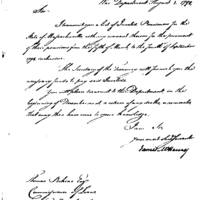 War Department August 2. 1796
Sir
I transmit you a list of Invalid Pensioners for the
State of Massachusetts with any amount thereon for the payment
of their pensions from the fifth of March to the fourth of September
1796 inclusive.
The Secretary of the Treasury will furnish you the
necessary funds to pay said Invalids.
You will please transmit to this Department on the
beginning of December next a return of any deaths, or removals
that may then have come to your knowledge.
I am Sir
your most obt Servant
James McHenry
Thomas Esqr
Commissioner of Loans